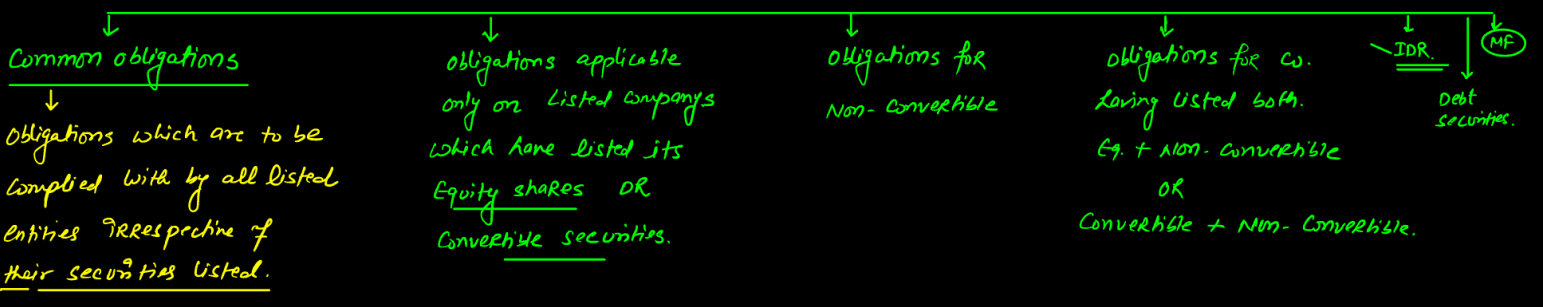 Common obligations
Obligations which are to be
complied with by all listed
entities irrespective of
their securities listed.
Obligations applicable
only on Listed Companys
which have listed its
Equity shares OR
Convertible securities.
Obligations for
Non-Convertible
Obligations for co.
having listed both.
Eq. + Non-Convertible
OR
Convertible + Non-Convertible.
IDR.
Debt
securities.
MF